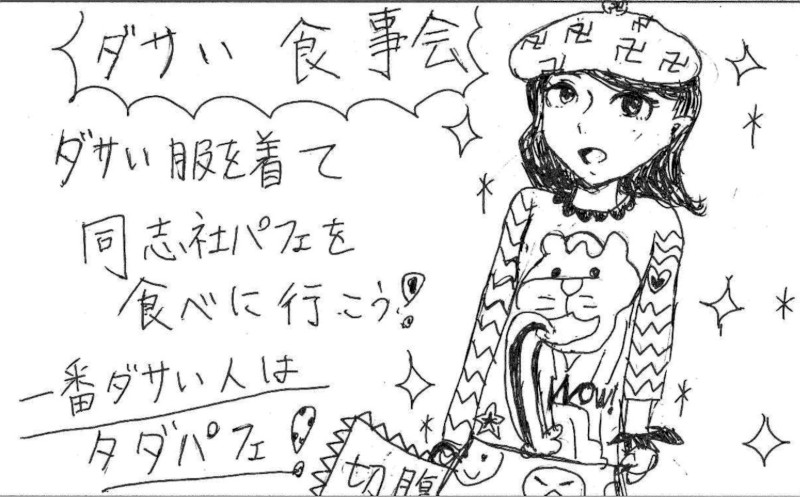 ダサい 食事会
ダサい服を着て
同志社パフェを
食べに行こう!
一番ダサい人は
タダパフェ!
卍 卍 卍 卍 卍 卍 卍
WOW!
切腹